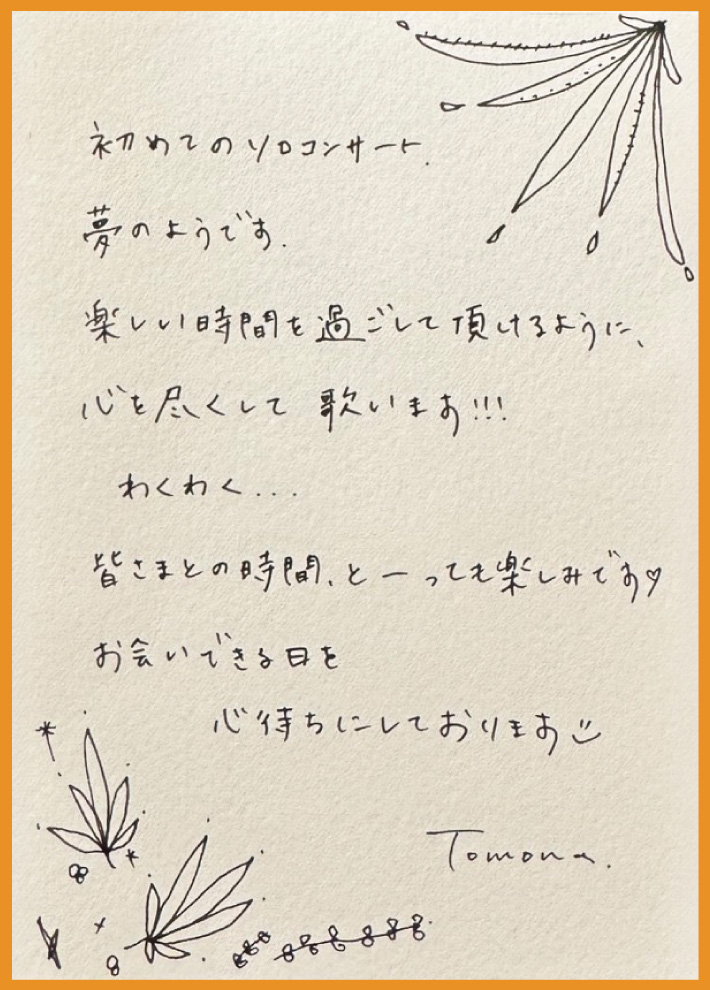 初めてのソロコンサート.
夢のようです.
楽しい時間を過ごして頂けるように、
心を尽くして 歌います!!!
わくわく...
皆さまとの時間、とーっても楽しみです♡
お会いできる日を
心待ちにしております
Tomona.